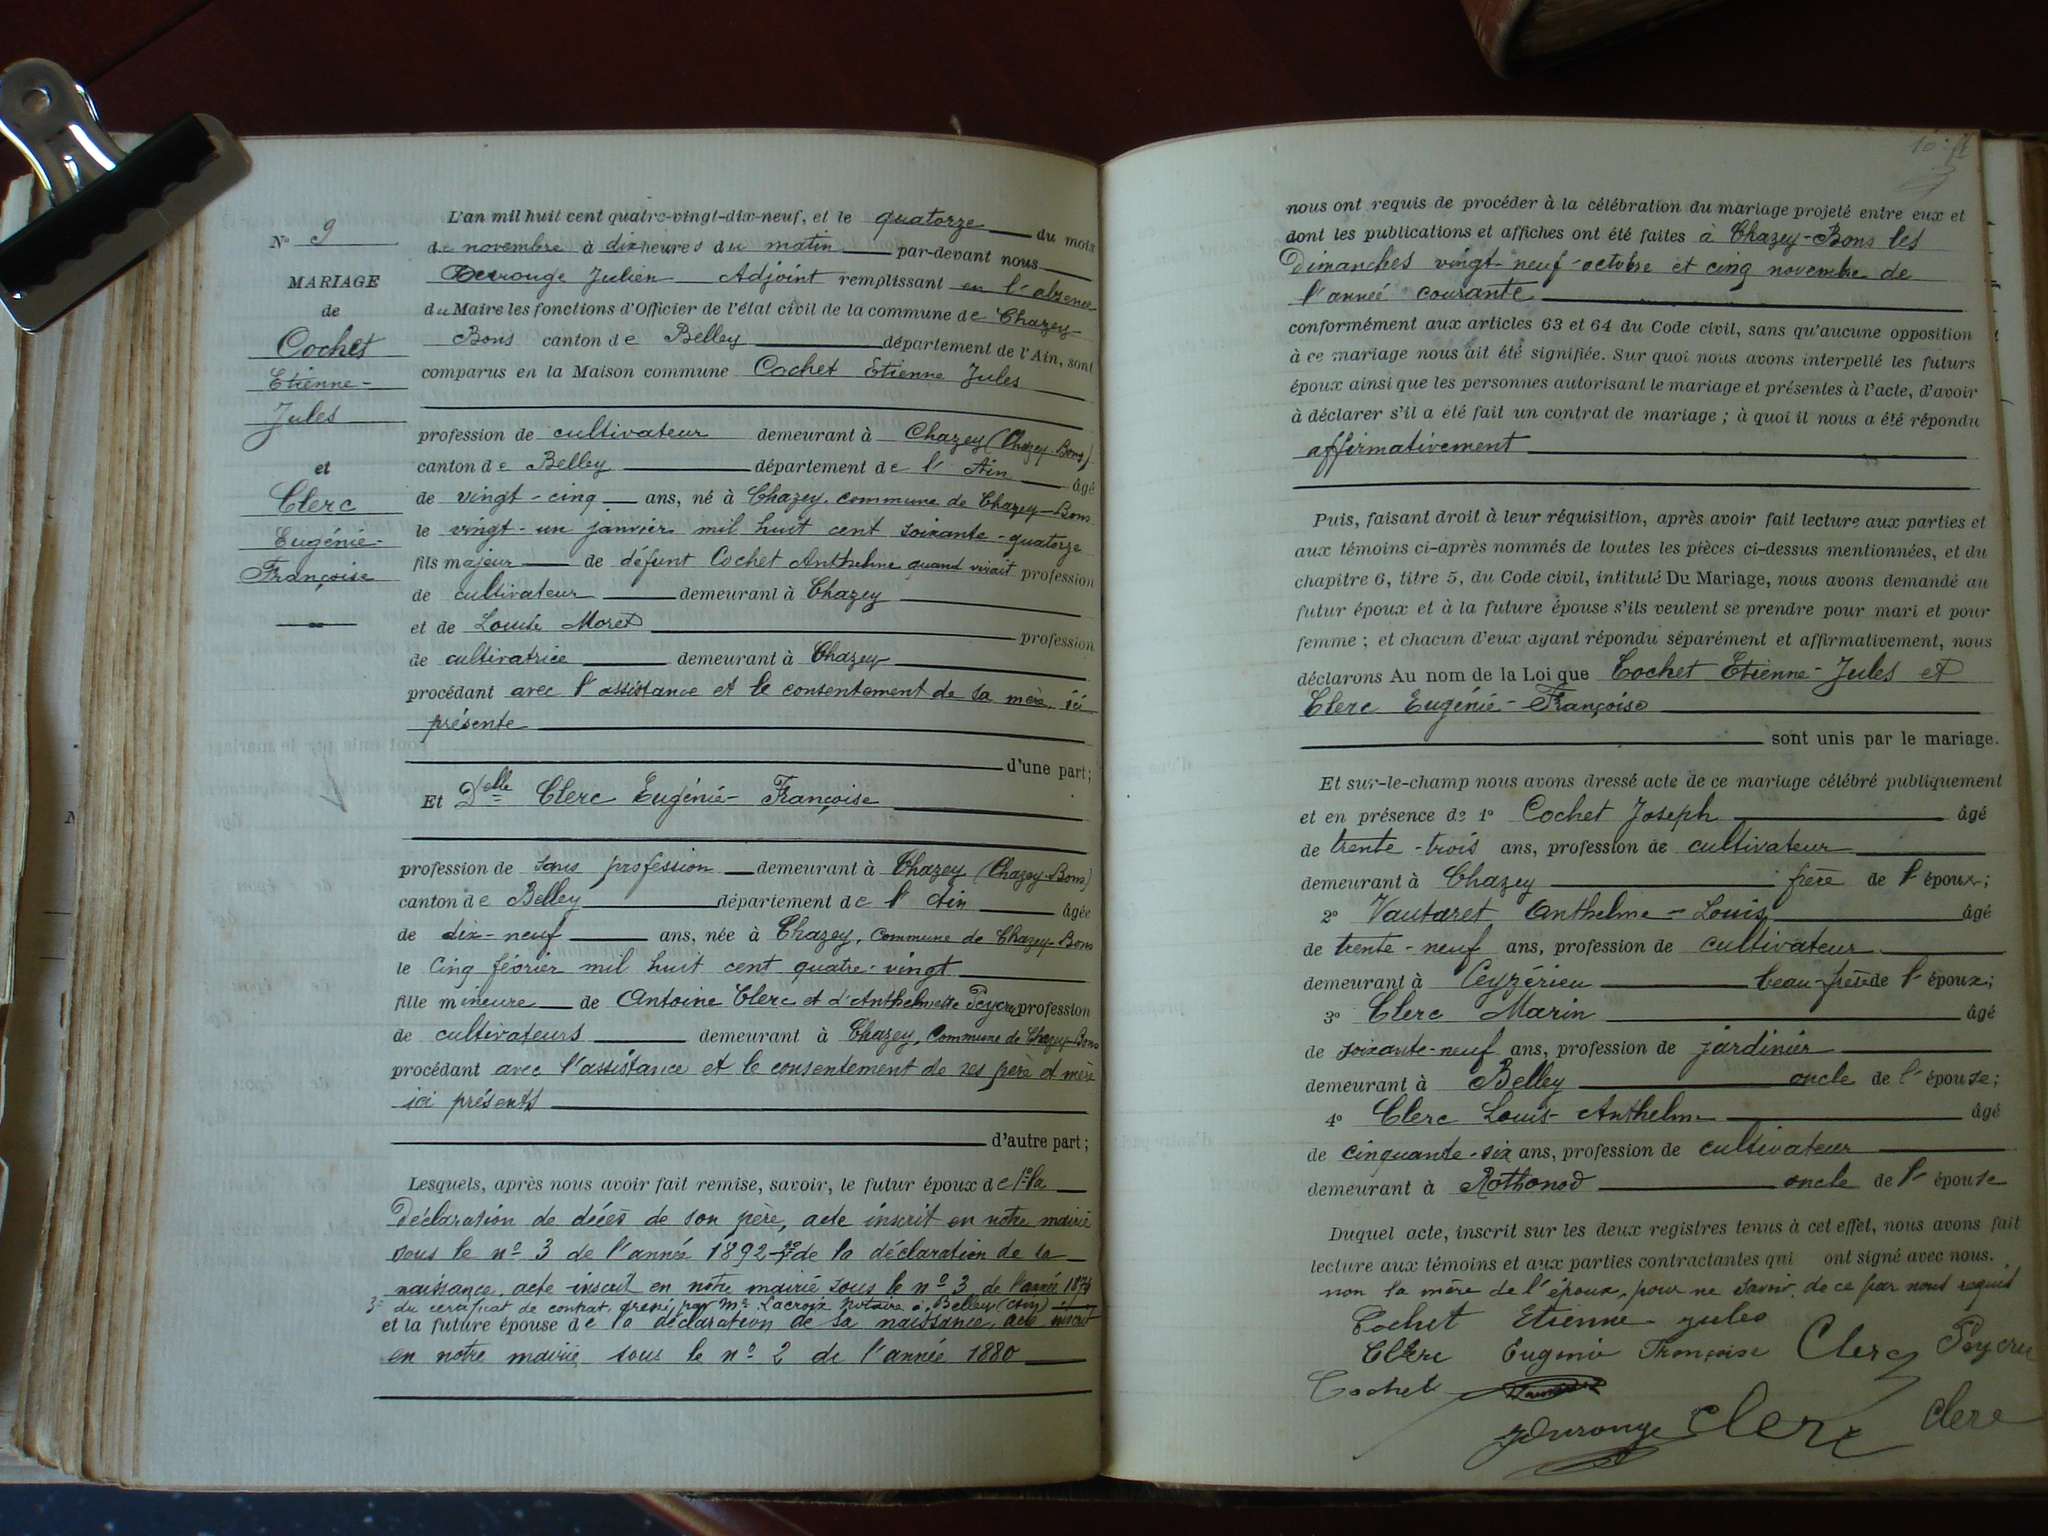 N° 9
MARIAGE
de
Cochet
Etienne-
Jules
et
Clerc
Eugénie-
Françoise
L'an mil huit cent quatre-vingt-dix-neuf, et le quatorze du mois
de novembre à dix heures du matin par-devant nous
Durouge Julien Adjoint remplissant en l'absence
du Maire les fonctions d'Officier de l'état civil de la commune de Chazey-
Bons canton de Belley département de l'Ain, sont
comparus en la Maison commune Cochet Etienne Jules
profession de cultivateur demeurant à Chazey (Chazey-Bons)
canton de Belley département de l'Ain âgé
de vingt-cinq ans, né à Chazey, commune de Chazey-Bons
le vingt-un janvier mil huit cent soixante-quatorze
fils majeur de défunt Cochet Anthelme quand vivait profession
de cultivateur demeurant à Chazey
et de Louise Moret profession
de cultivatrice demeurant à Chazey
procédant avec l'assistance et le consentement de sa mère, ici
présente
d'une part;
Et Delle Clerc Eugénie-Françoise
profession de sans profession demeurant à Chazey (Chazey-Bons)
canton de Belley département de l'Ain âgée
de dix-neuf ans, née à Chazey, commune de Chazey-Bons
le cinq février mil huit cent quatre-vingt
fille mineure de Antoine Clerc et d'Anthelmette Peycru profession
de cultivateurs demeurant à Chazey, commune de Chazey-Bons
procédant avec l'assistance et le consentement de ses père et mère
ici présents
d'autre part;
Lesquels, après nous avoir fait remise, savoir, le futur époux de 1° la
déclaration de décès de son père, acte inscrit en notre mairie
sous le n° 3 de l'année 1892 - 2° de la déclaration de sa
naissance, acte inscrit en notre mairie sous le n° 3 de l'année 1874
3° du certificat de contrat, dressé par Me Lacroix Notaire à Belley (Ain)
et la future épouse de la déclaration de sa naissance, acte inscrit
en notre mairie sous le n° 2 de l'année 1880
nous ont requis de procéder à la célébration du mariage projeté entre eux et
dont les publications et affiches ont été faites à Chazey-Bons les
Dimanches vingt-neuf octobre et cinq novembre de
l'année courante
conformément aux articles 63 et 64 du Code civil, sans qu'aucune opposition
à ce mariage nous ait été signifiée. Sur quoi nous avons interpellé les futurs
époux ainsi que les personnes autorisant le mariage et présentes à l'acte, d'avoir
à déclarer s'il a été fait un contrat de mariage; à quoi il nous a été répondu
affirmativement
Puis, faisant droit à leur réquisition, après avoir fait lecture aux parties et
aux témoins ci-après nommés de toutes les pièces ci-dessus mentionnées, et du
chapitre 6, titre 5, du Code civil, intitulé Du Mariage, nous avons demandé au
futur époux et à la future épouse s'ils veulent se prendre pour mari et pour
femme; et chacun d'eux ayant répondu séparément et affirmativement, nous
déclarons Au nom de la Loi que Cochet Etienne-Jules et
Clerc Eugénie-Françoise
sont unis par le mariage.
Et sur-le-champ nous avons dressé acte de ce mariage célébré publiquement
et en présence de 1° Cochet Joseph âgé
de trente-trois ans, profession de cultivateur
demeurant à Chazey frère de l'époux;
2° Vautaret Anthelme-Louis âgé
de trente-neuf ans, profession de cultivateur
demeurant à Ceyzérieu beau-frère de l'époux;
3° Clerc Marin âgé
de soixante-neuf ans, profession de jardinier
demeurant à Belley oncle de l'épouse;
4° Clerc Louis-Anthelme âgé
de cinquante-six ans, profession de cultivateur
demeurant à Rothonod oncle de l'épouse
Duquel acte, inscrit sur les deux registres tenus à cet effet, nous avons fait
lecture aux témoins et aux parties contractantes qui ont signé avec nous.
non la mère de l'époux, pour ne savoir, de ce par nous requis
Cochet Etienne Jules
Clerc Eugénie Françoise Clerc Peycru
Cochet
JDurouge Clerc Clerc